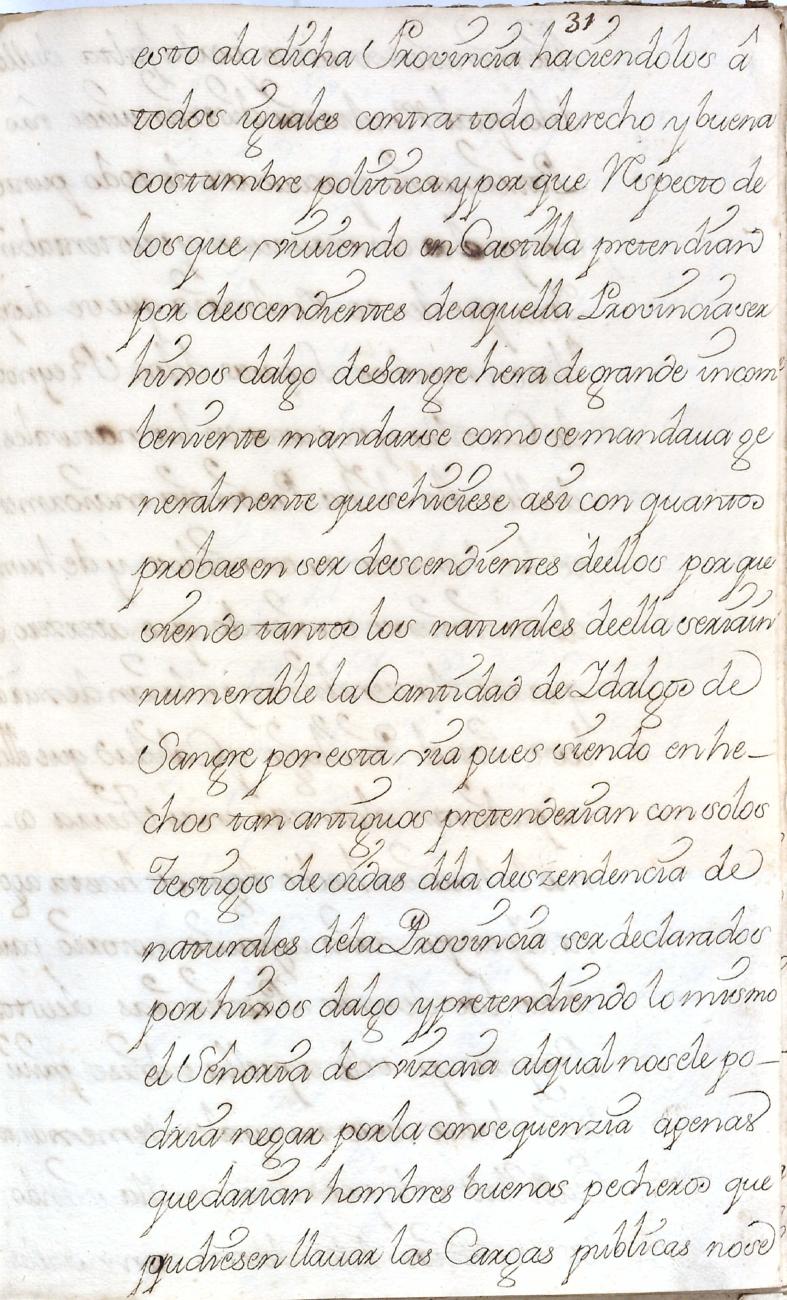 31
esto ala dicha Provincia haciendolos á
todos iguales contra todo derecho y buena
costumbre politica y por que Respecto de
los que viviendo en Castilla pretendian
por descendientes de aquella Provincia ser
hixos dalgo de Sangre hera de grande incom
beniente mandarse como se mandaua ge
neralmente que se hiciese asi con quantos
probasen ser descendientes de ellos por que
siendo tantos los naturales de ella seria in
numerable la Cantidad de Idalgos de
Sangre por esta via pues siendo en he-
chos tan antiguos pretenderian con solos
Testigos de oidas de la deszendencia de
naturales de la Provincia ser declarados
por hixos dalgo y pretendiendo lo mismo
el Señoria de vizcaia al qual no se le po-
dria negar por la consequenzia apenas
quedarian hombres buenos pecheros que
pudiesen llauar las Cargas publicas no se